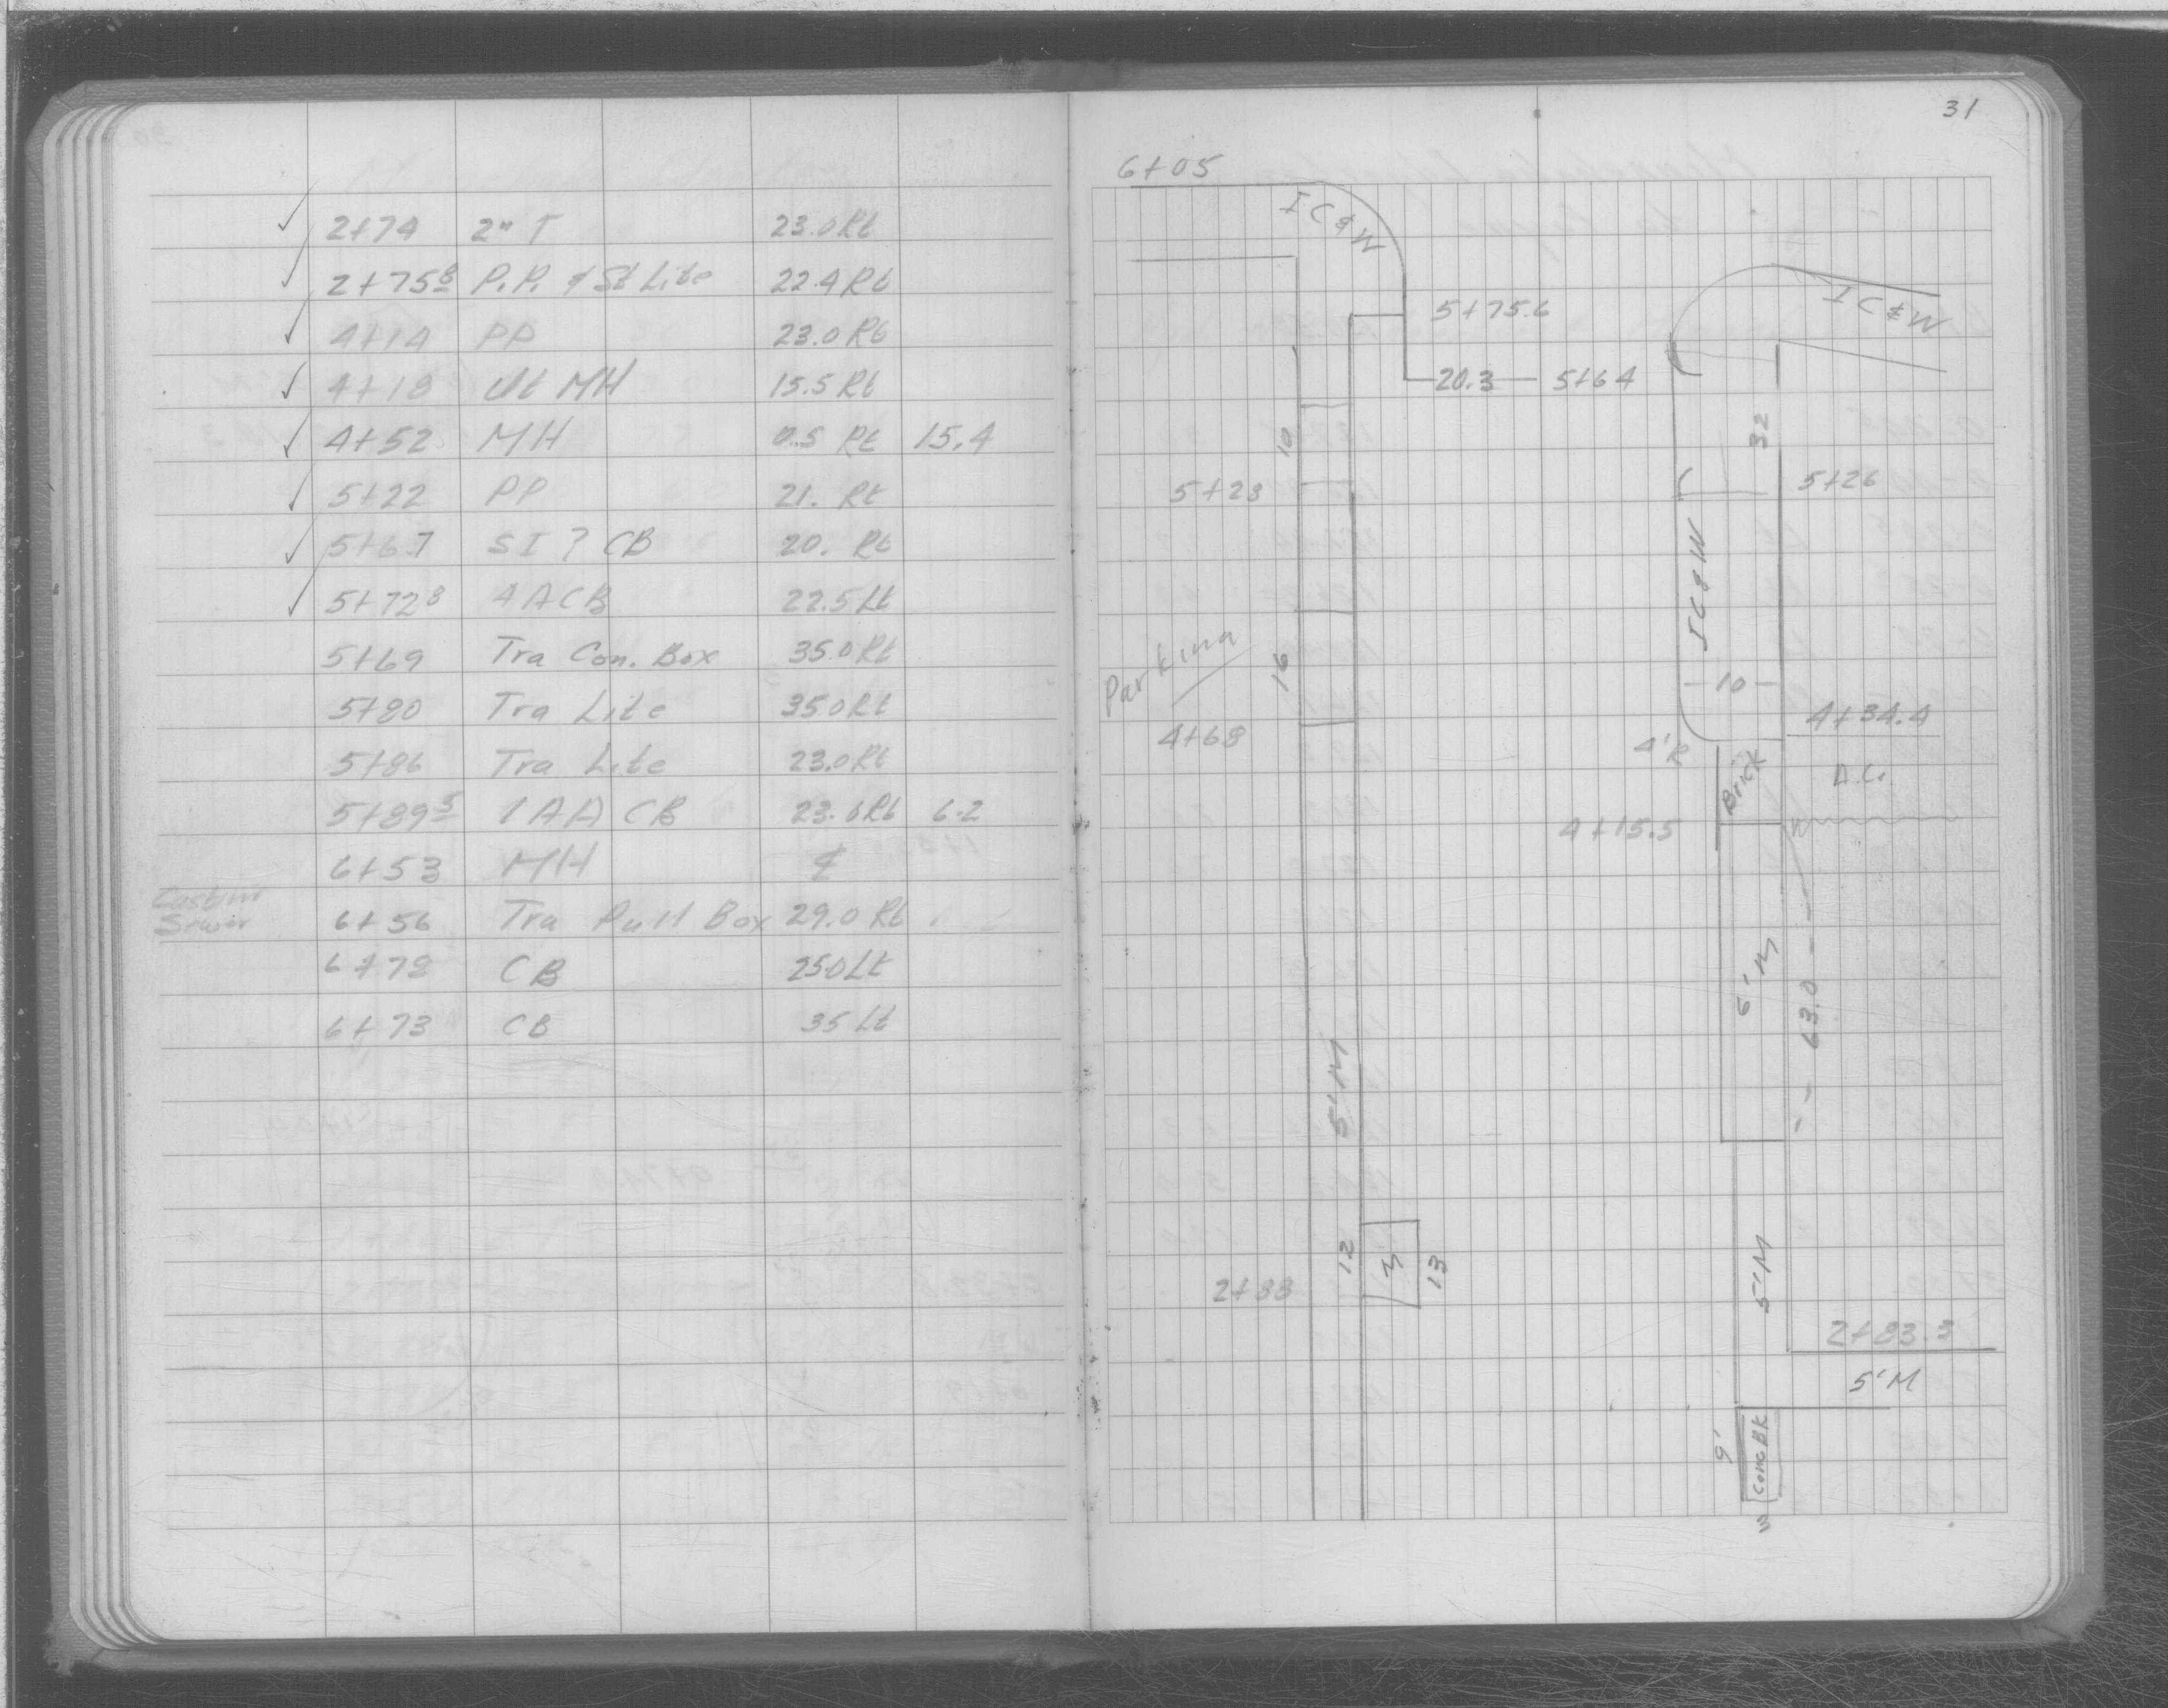 31
✓ 2+74 2" T 23.0 Rt
✓ 2+75⁸ P.P. & St Lite 22.4 Rt
✓ 4+14 PP 23.0 Rt
✓ 4+18 Ut MH 15.5 Rt
✓ 4+52 MH 0.5 Rt 15.4
✓ 5+22 PP 21. Rt
✓ 5+67 SI? CB 20. Rt
✓ 5+72⁸ 4A CB 22.5 Lt
5+69 Tra Con. Box 35.0 Rt
5+80 Tra Lite 35.0 Rt
5+86 Tra Lite 23.0 Rt
5+89⁵ 1AA CB 23.6 Rt 6.2
6+53 MH ¢
Sewer 6+56 Tra Pull Box 29.0 Rt
6+78 CB 25.0 Lt
6+73 CB 35 Lt
6+05
IC&W
IC&W
5+75.6
20.3 5+64
10
32
5+23
5+26
IC&W
Parking
16
10
4+34.4
4+68
4'R
Brick
A.C.
4+15.5
6'M
63.0
5'M
12
3
13
5'M
2+88
2+83.3
5'M
9'
Conc Bk
3